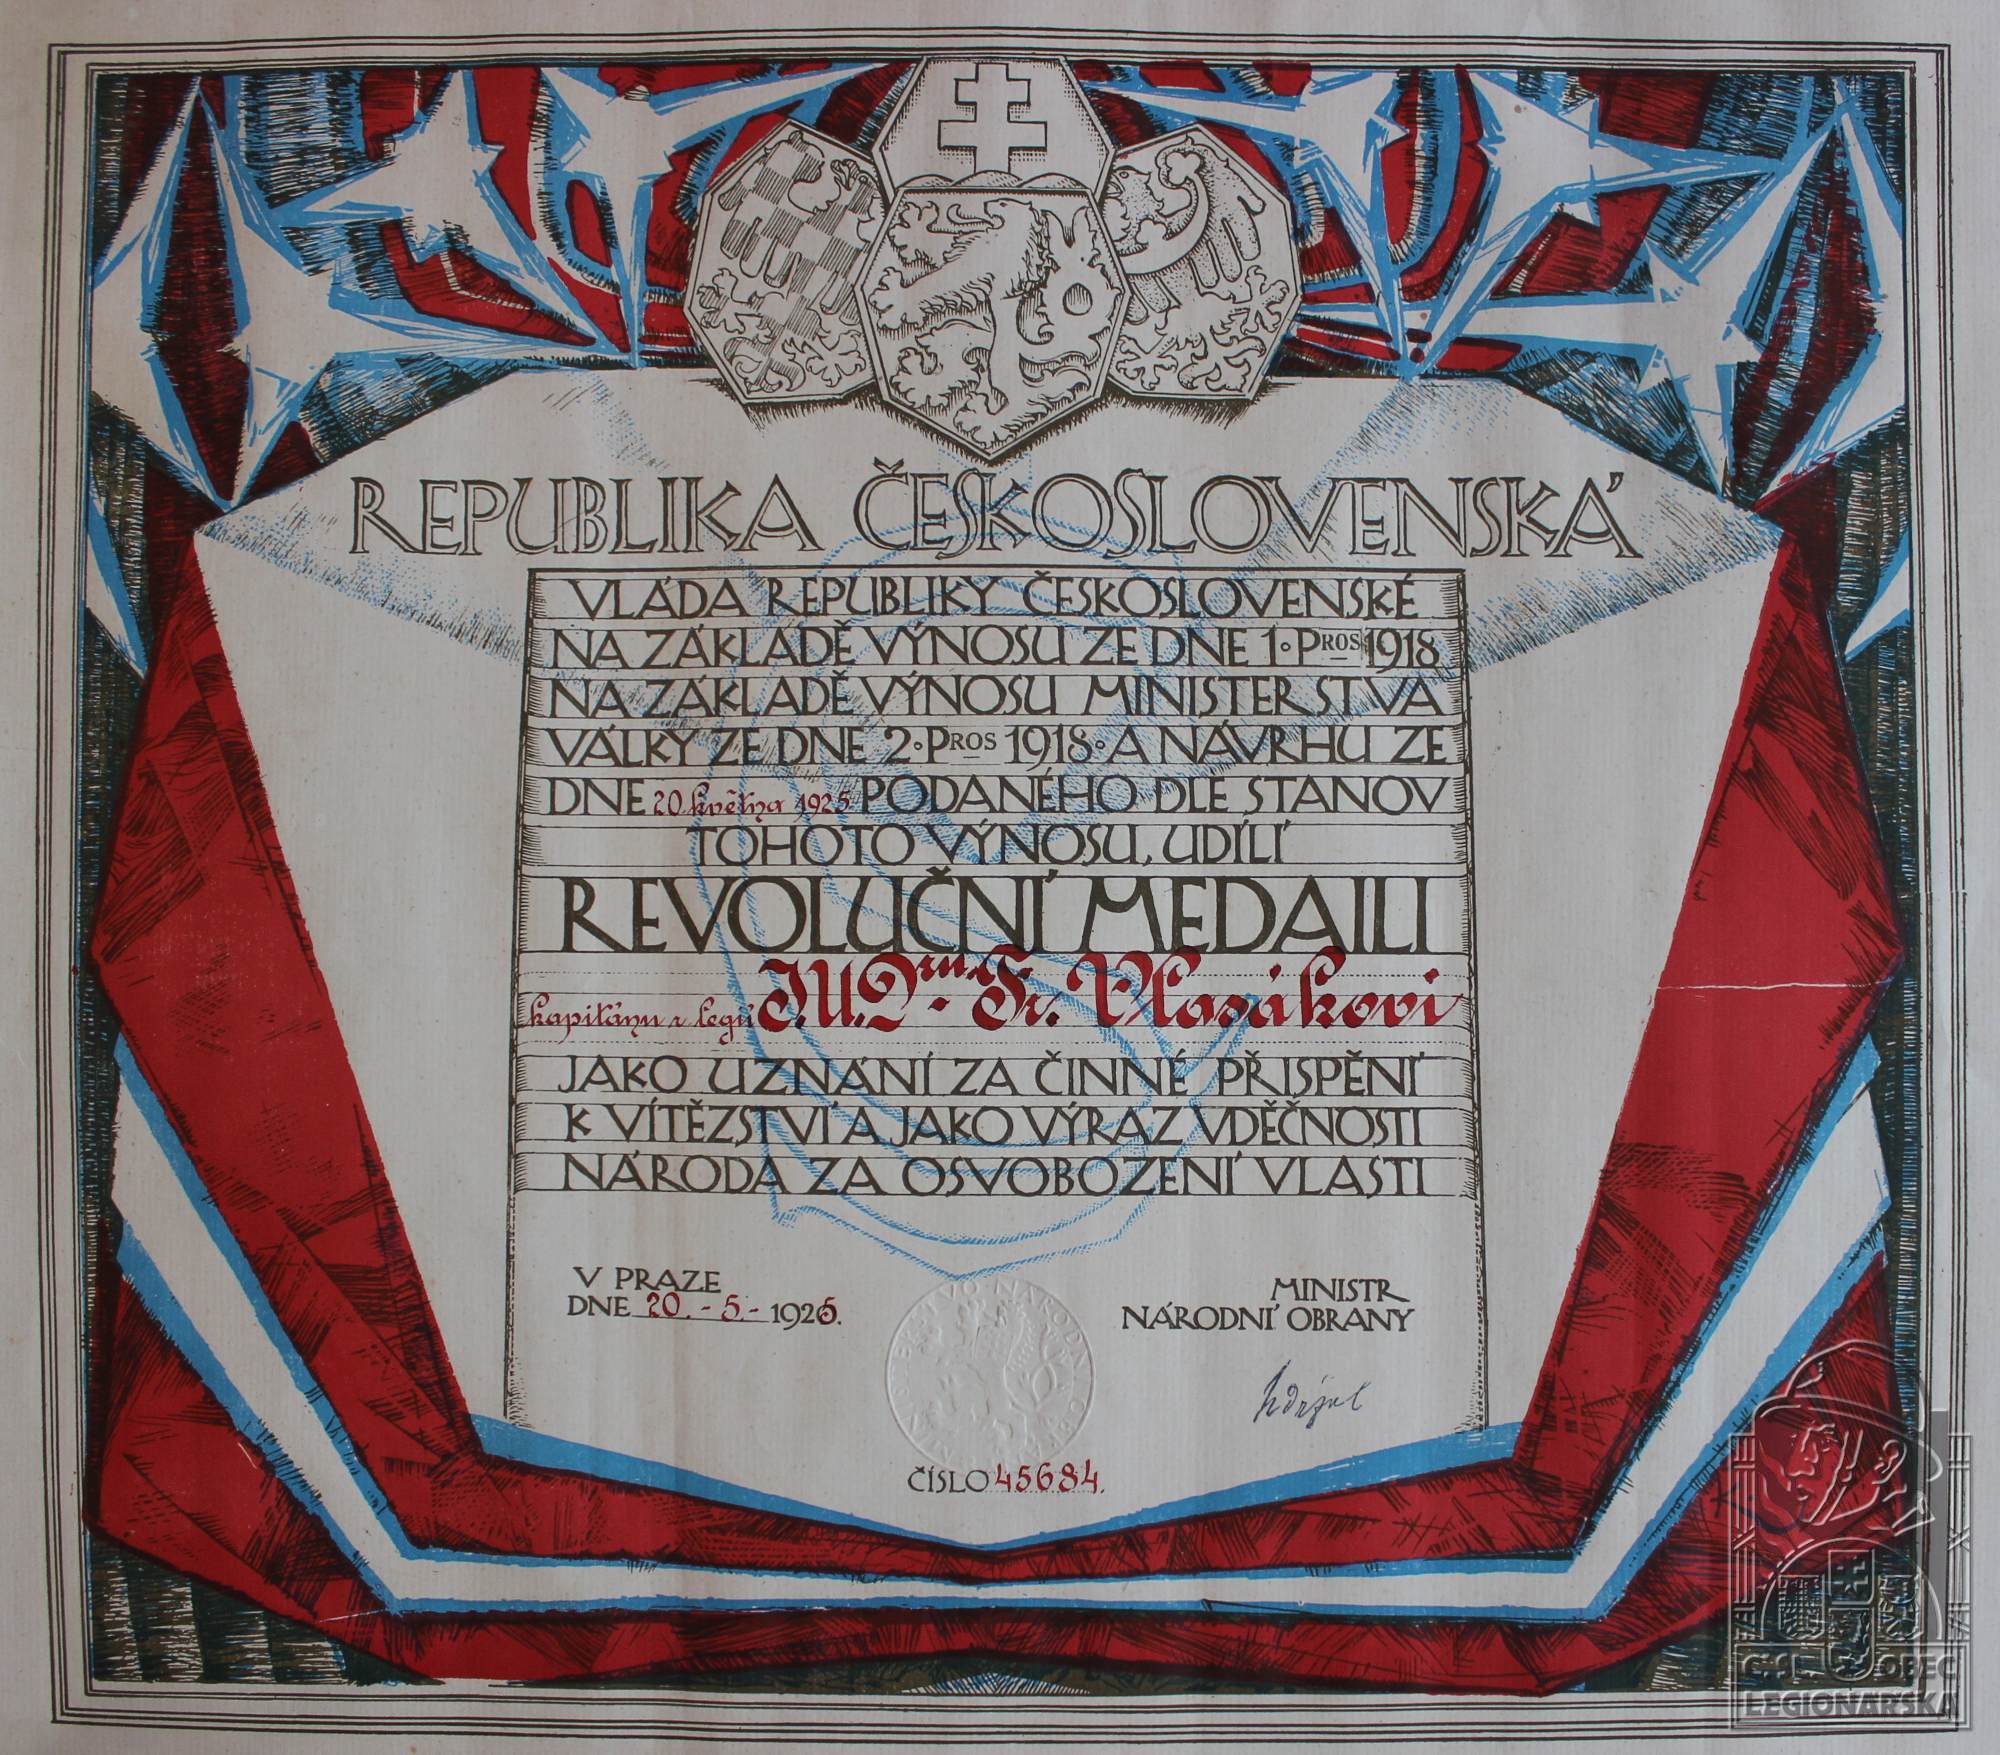 REPUBLIKA ČESKOSLOVENSKÁ
VLÁDA REPUBLIKY ČESKOSLOVENSKÉ
NA ZÁKLADĚ VÝNOSU ZE DNE 1. PROS 1918
NA ZÁKLADĚ VÝNOSU MINISTERSTVA
VÁLKY ZE DNE 2. PROS 1918. A NÁVRHU ZE
DNE 20. května 1925 PODANÉHO DLE STANOV
TOHOTO VÝNOSU, UDÍLÍ
REVOLUČNÍ MEDAILI
kapitánu r. legií J.U.Drn. Fr. Vlasákovi
JAKO UZNÁNÍ ZA ČINNÉ PŘISPĚNÍ
K VÍTĚZSTVÍ A JAKO VÝRAZ VDĚČNOSTI
NÁRODA ZA OSVOBOZENÍ VLASTI
V PRAZE
DNE 20. - 5. - 1925.
MINISTR
NÁRODNÍ OBRANY
MINISTERSTVO NÁRODNÍ OBRANY
ČÍSLO 45684.
ČSL. OBEC
LEGIONÁŘSKÁ